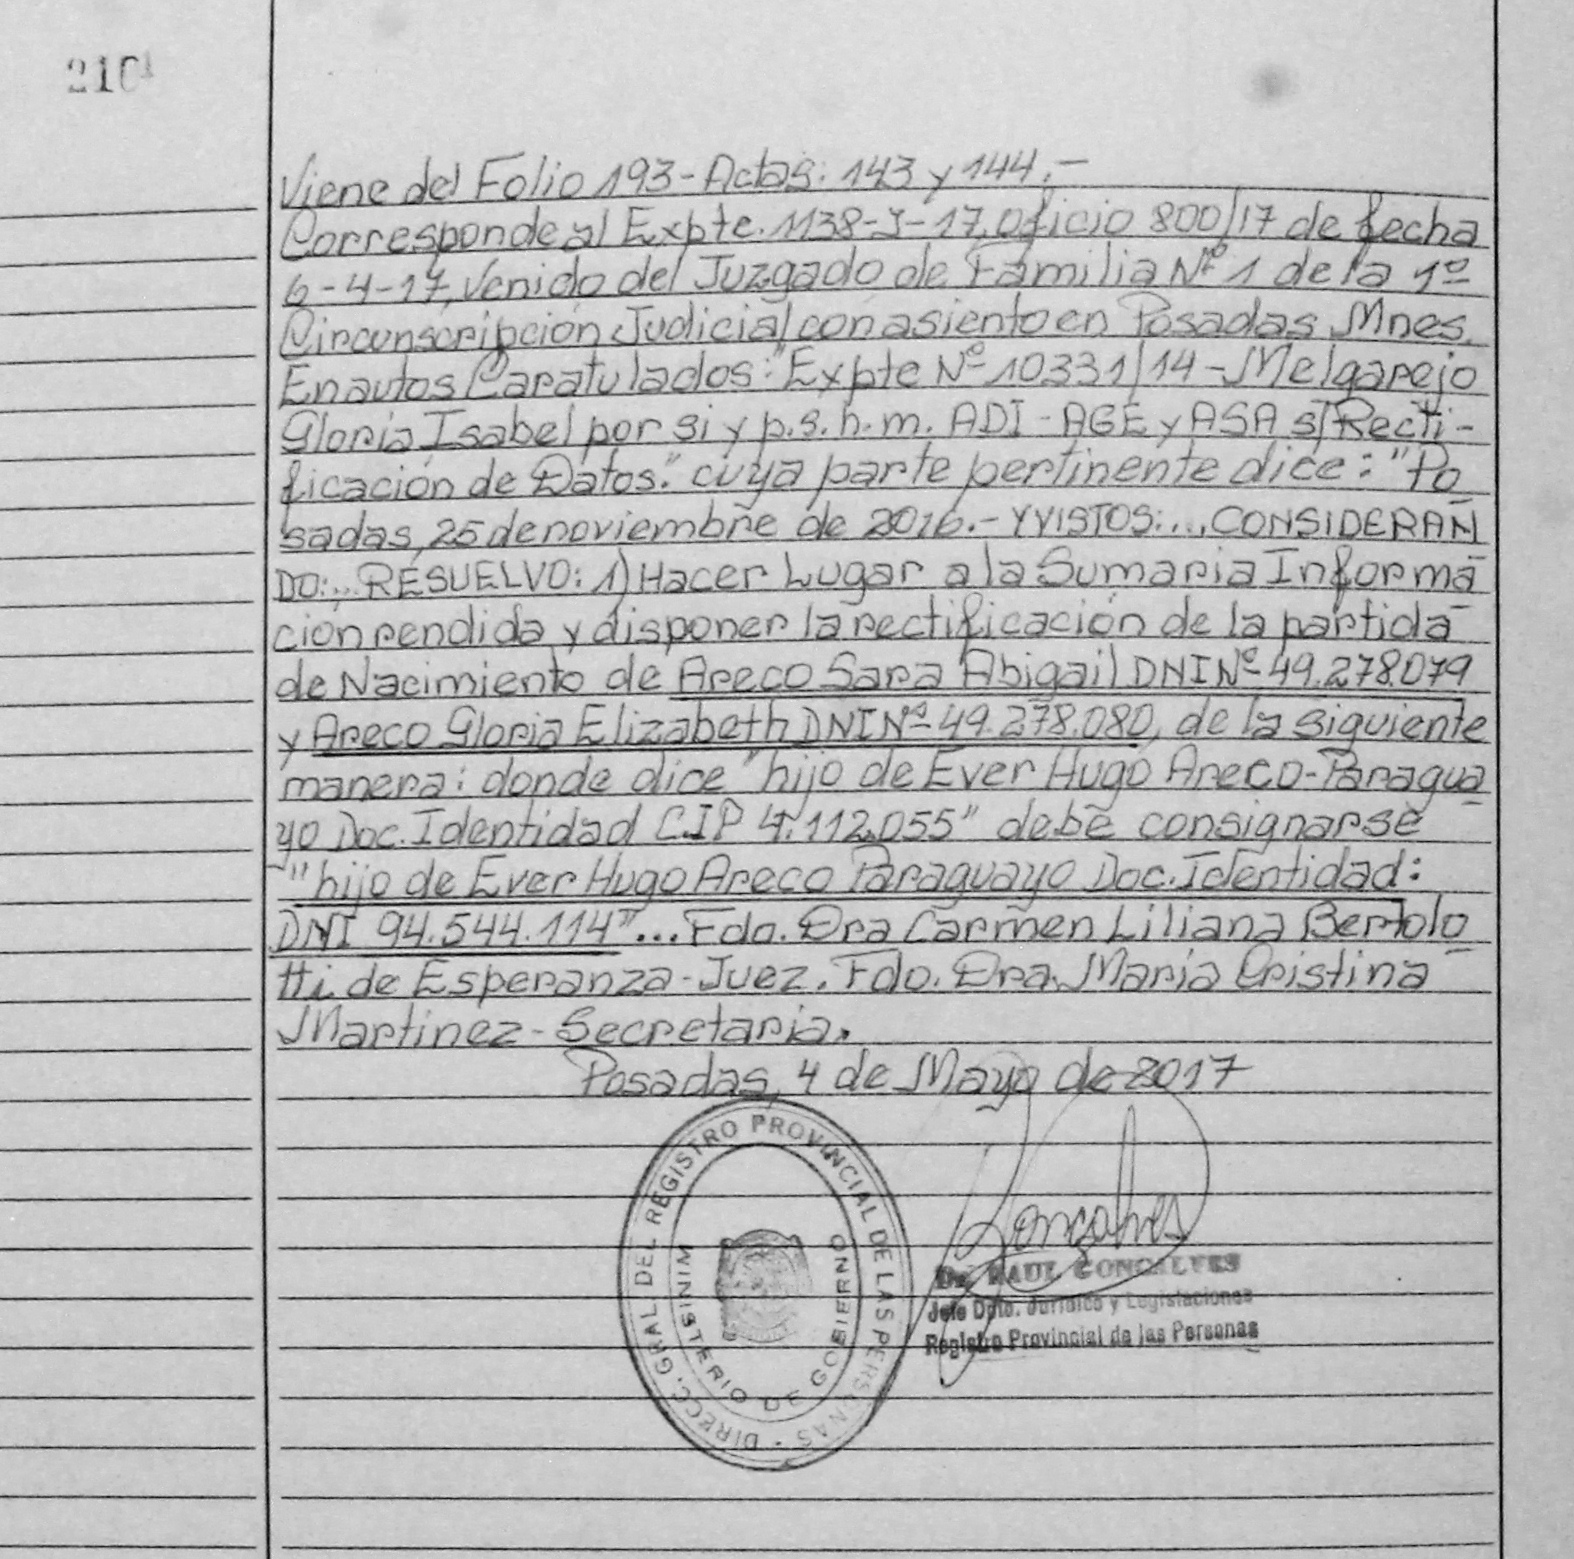 210
Viene del Folio 193 - Actas: 143 y 144.-
Corresponde al Expte. 1138-J-17, oficio 800/17 de fecha
6-4-17, venido del Juzgado de Familia Nº 1 de la 1º
Circunscripción Judicial con asiento en Posadas Mnes.
En autos Caratulados: "Expte Nº 10331/14 - Melgarejo
Gloria Isabel por si y p.s.h.m. ADI - AGE y ASA s/ Recti-
ficación de Datos." cuya parte pertinente dice: "Po
sadas, 25 de noviembre de 2016.- Y VISTOS:... CONSIDERAN
DO:... RESUELVO: 1) Hacer Lugar a la Sumaria Informa
cion rendida y disponer la rectificación de la partida
de Nacimiento de Areco Sara Abigail DNI Nº 49.278.079
y Areco Gloria Elizabeth DNI Nº 49.278.080, de la siguiente
manera: donde dice "hijo de Ever Hugo Areco-Paragua
yo Doc. Identidad C.I.P 4.112.055" debe consignarse
"hijo de Ever Hugo Areco Paraguayo Doc. Identidad:
DNI 94.544.114"... Fdo. Dra Carmen Liliana Bertolo
tti de Esperanza - Juez. Fdo. Dra. Maria Cristina
Martinez - Secretaria.
Posadas, 4 de Mayo de 2017
DIRECC. GRAL. DEL REGISTRO PROVINCIAL DE LAS PERSONAS -
MINISTERIO DE GOBIERNO
Gonçalves
Dr. RAUL GONCALVES
Jefe Dpto. Jurídico y Legislaciones
Registro Provincial de las Personas